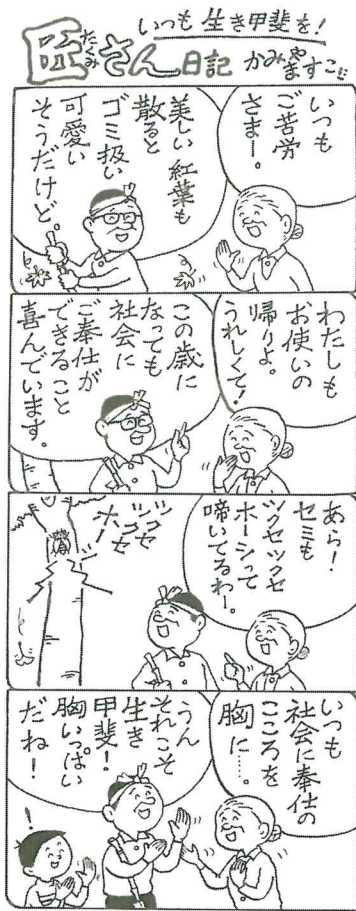 いつも生き甲斐を!
たくみ
匠さん日記 かみやますこ
いつも
ご苦労
さまー。
美しい紅葉も
散ると
ゴミ扱い
可愛い
そうだけど。
わたしも
お使いの
帰りよ。
うれしくて!
この歳に
なっても
社会に
ご奉仕が
できること
喜んでいます。
あら!
セミも
ツクセツクセ
ホーシって
啼いてるわー。
ツクセ
ツクセ
ホーシ
いつも
社会に奉仕の
こころを
胸に…。
うん
それこそ
生き
甲斐!
胸いっぱい
だね!
!